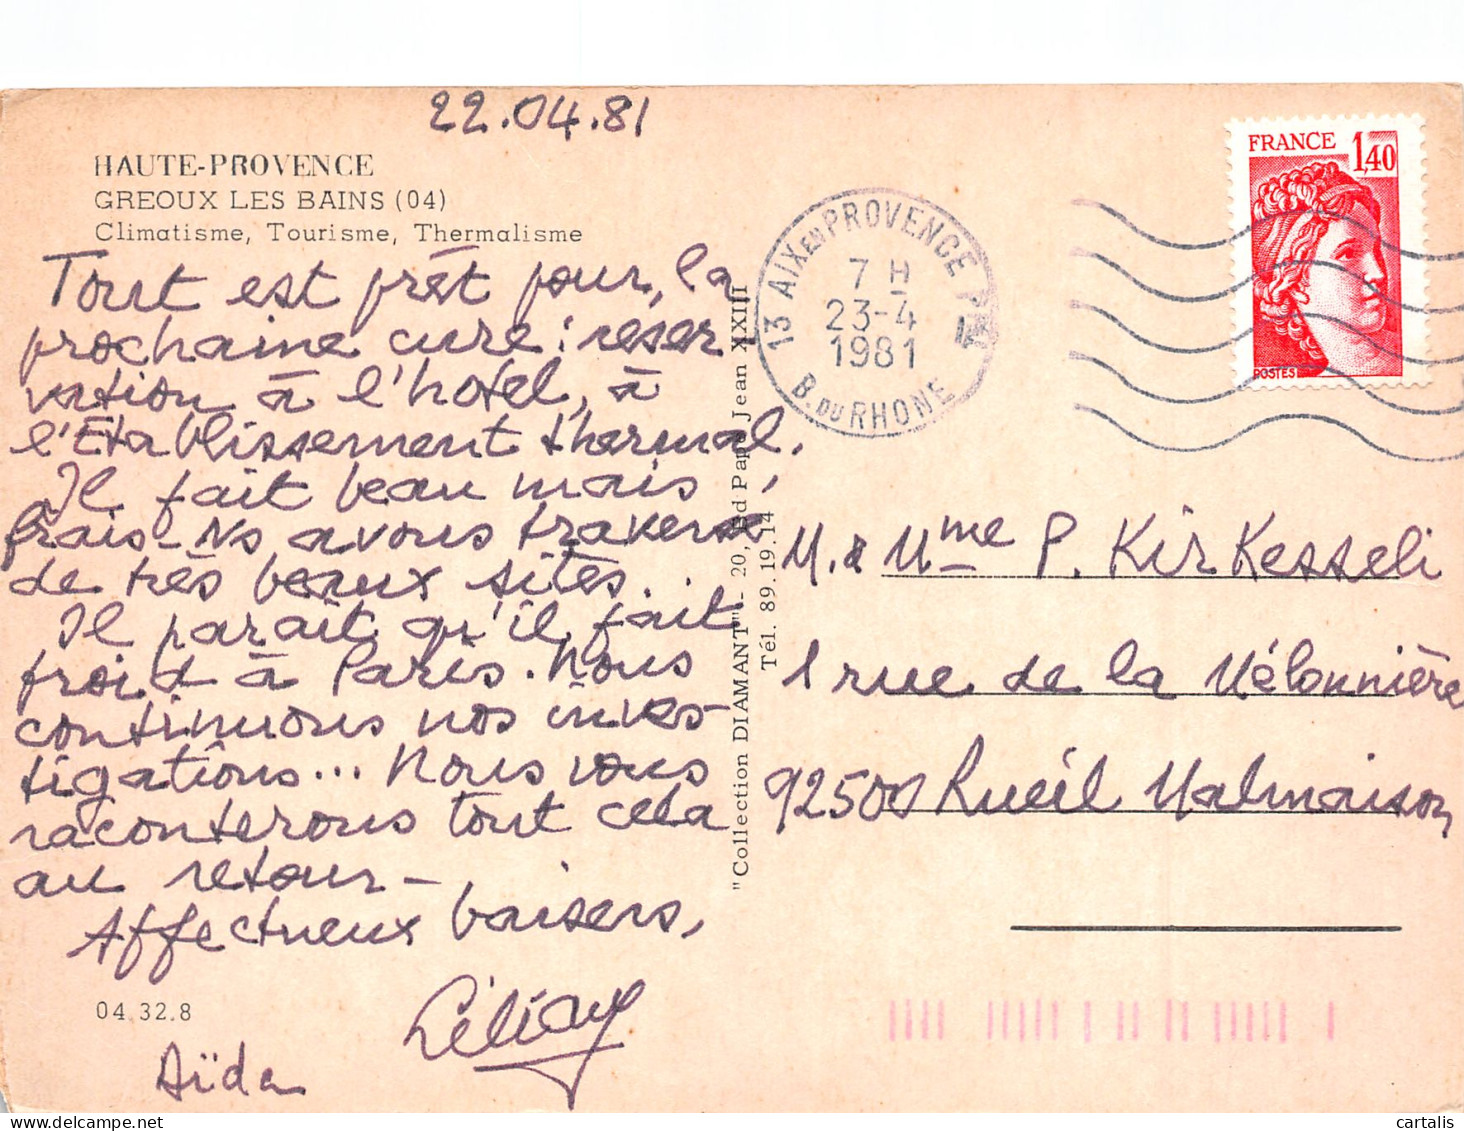 22.04.81
HAUTE-PROVENCE
GREOUX LES BAINS (04)
Climatisme, Tourisme, Thermalisme
Tout est prêt pour la
prochaine cure : réser
vation à l'hotel, à
l'Etablissement thermal.
Il fait beau mais
frais - Ns avons traversé
de très beaux sites.
Il paraît qu'il fait
froid à Paris. Nous
continuons nos inves-
tigations... Nous vous
raconterons tout cela
au retour -
Affectueux baisers,
04.32.8
Aïda
"Collection DIAMANT" - 20, Bd Pape Jean XXIII
Tél. 89.19.14
13 AIX EN PROVENCE
7 H
23-4
1981
B. DU RHONE
FRANCE 1,40
POSTES
M. & Mme P. Kirkesseli
1 rue de la Mélonnière
92500 Rueil Malmaison
cartalis